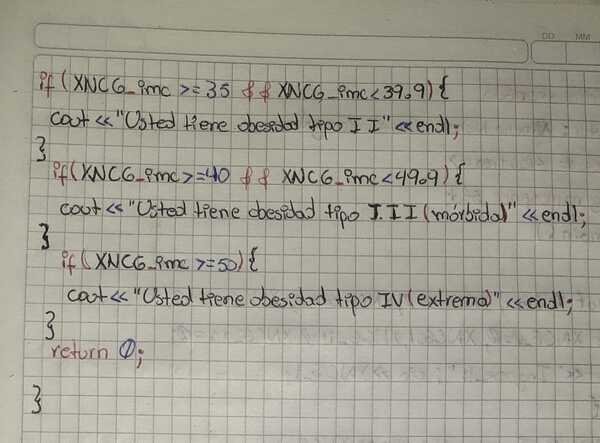 DD MM
if (XNCG_imc >= 35 && XNCG_imc < 39.9) {
cout << "Usted tiene obesidad tipo II" << endl;
}
if (XNCG_imc >= 40 && XNCG_imc < 49.9) {
cout << "Usted tiene obesidad tipo III (mórbida)" << endl;
}
if (XNCG_imc >= 50) {
cout << "Usted tiene obesidad tipo IV (extrema)" << endl;
}
return 0;
}